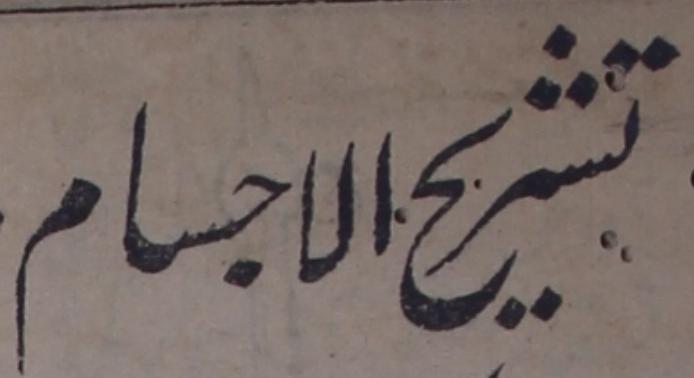 تشریح الاجسام